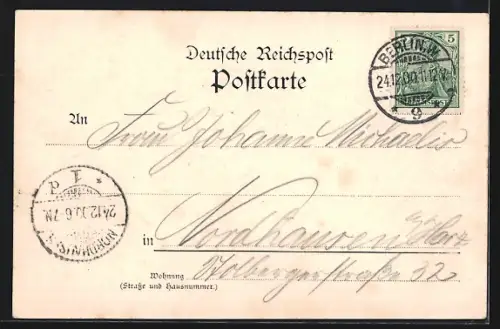 Deutsche Reichspost
Postkarte
5
BERLIN, W.
24.12.00. 11-12V.
* 9
An Frau Johanne Michaelis
NORDHAUSEN
24.12.00. 6-7N.
* 1 d
in Nordhausen a/Harz
Wohnung Stolbergerstraße 32
(Straße und Hausnummer.)